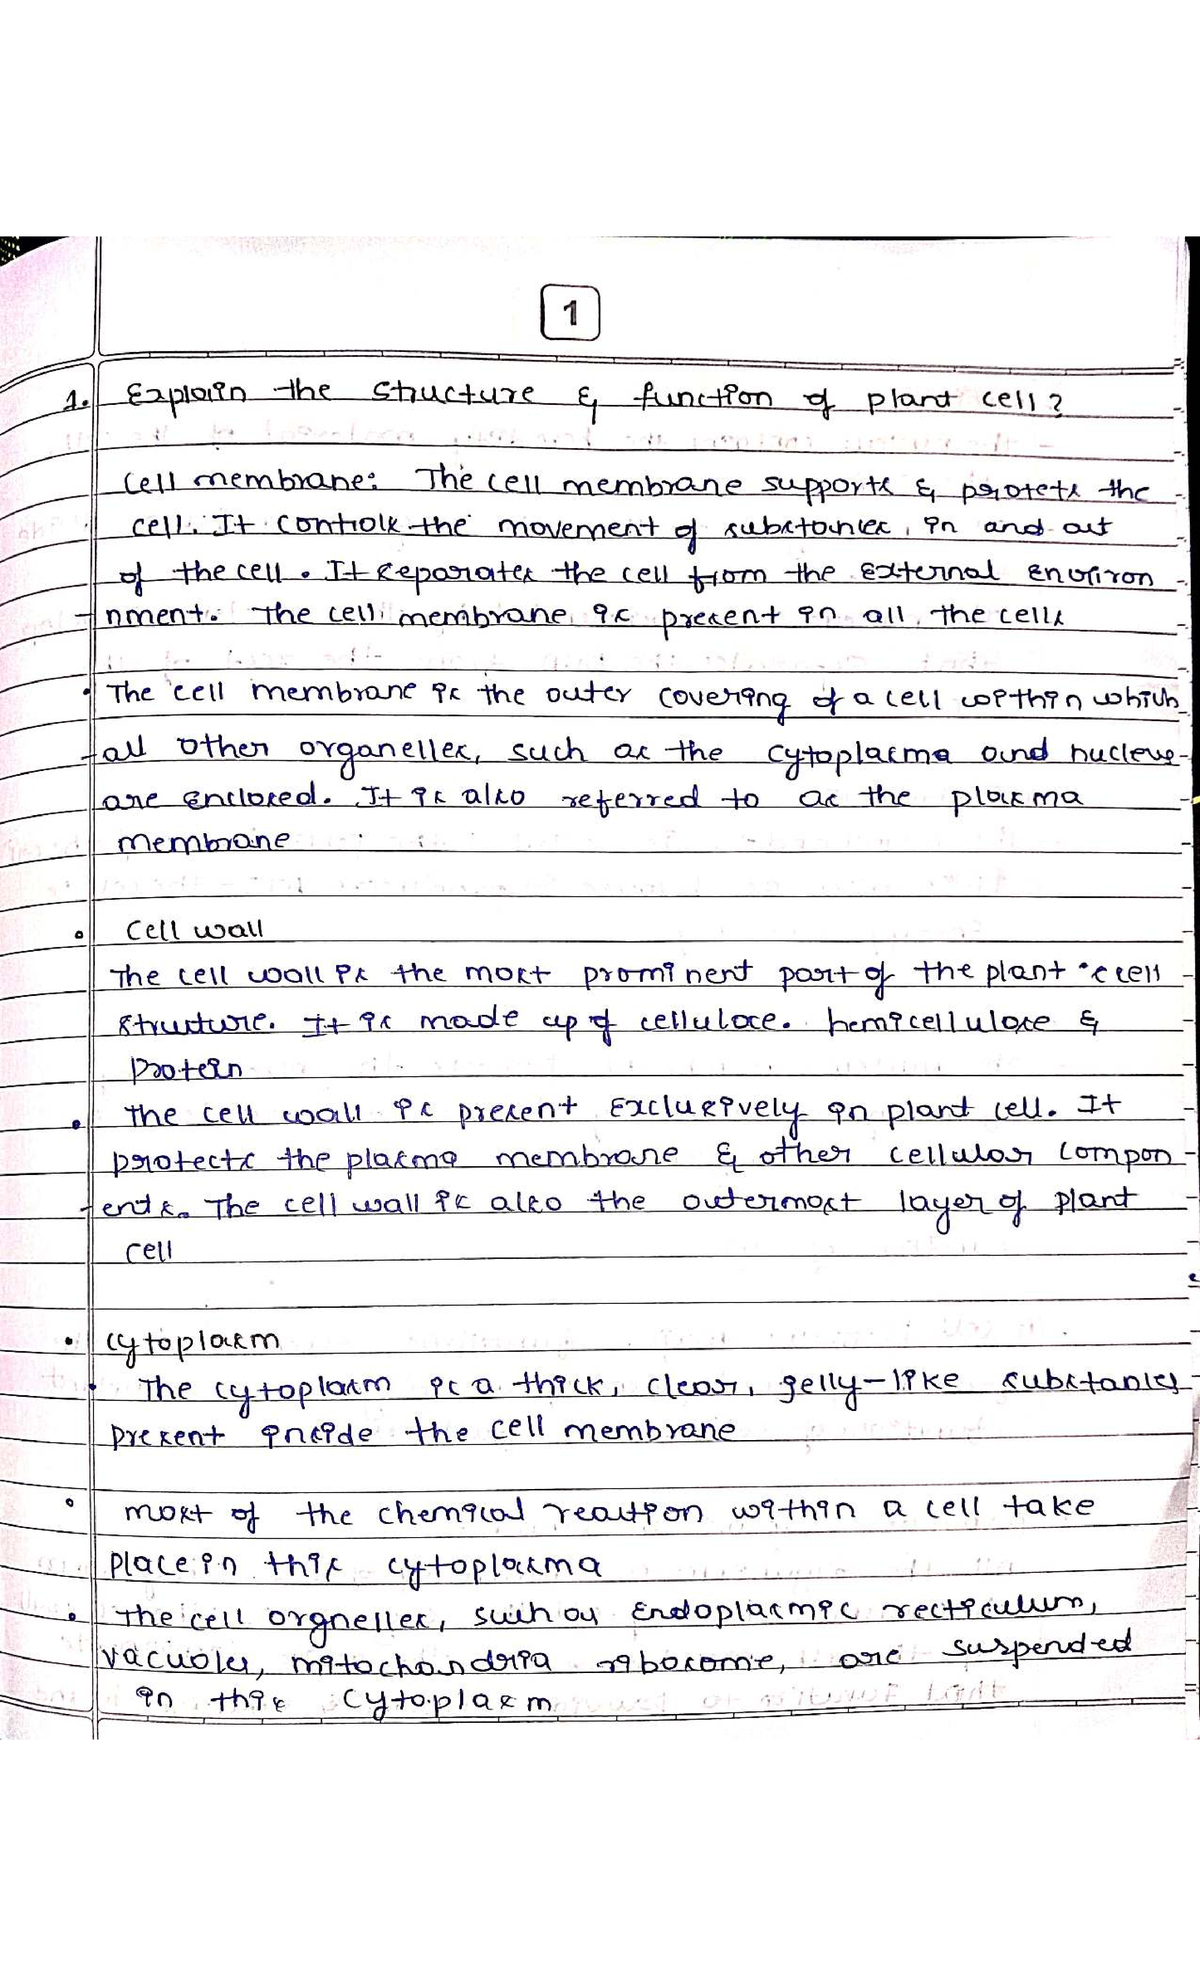 1
1. Explain the structure & function of plant cell?
cell membrane: The cell membrane supports & protets the
cell. It controls the movement of substances, in and out
of the cell. It seperates the cell from the external environ
nment. The cell membrane is present in all the cells
• The cell membrane is the outer covering of a cell within which
all other organelles, such as the cytoplasma and nucleus
are enclosed. It is also referred to as the plasma
membrane
• Cell wall
The cell wall is the most prominent part of the plant cell
structure. It is made up of cellulose. hemicellulose &
protein
• The cell wall is present Exclusively in plant cell. It
protects the plasma membrane & other cellular compon
ents. The cell wall is also the outermost layer of plant
cell
• cytoplasm
• The cytoplasm is a thick, clear, gelly-like substances
present inside the cell membrane
• most of the chemical reaction within a cell take
place in this cytoplasma
• The cell orgnelles, such as Endoplasmic recticulum,
vacuoles, mitochondria ribosome, are suspended
in this cytoplasm